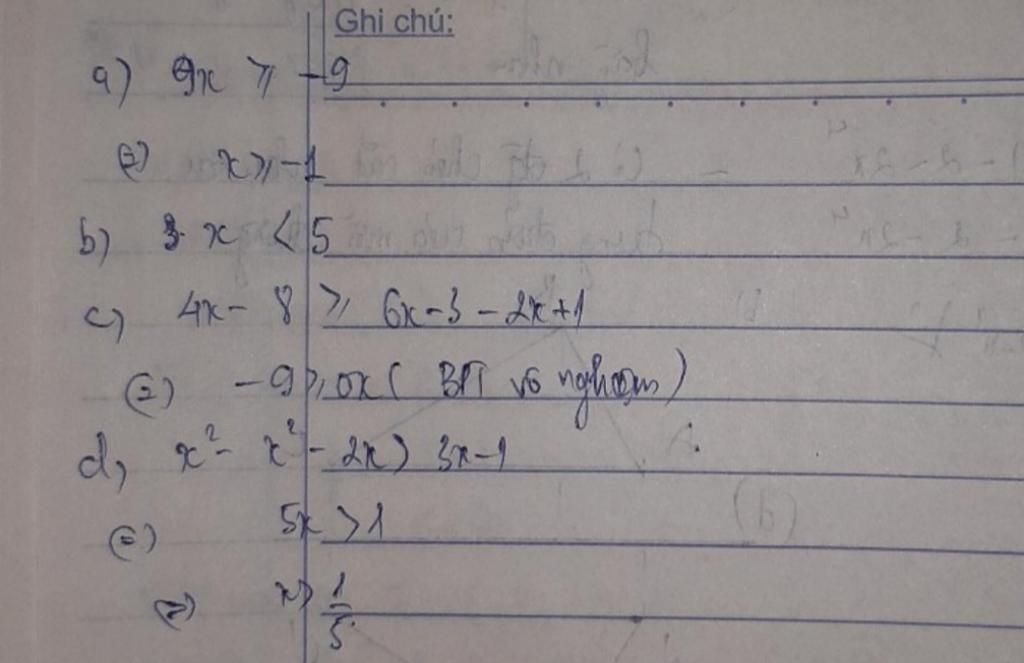 Ghi chú:
a) 9x ⩾ -9
(=) x ⩾ -1
b) 3 x < 5
c) 4x - 8 ⩾ 6x - 3 - 2x + 1
(=) -9 ⩾ 0x ( BPT vô nghiệm )
d) x² - x² - 2x > 3x - 1
(=) 5x > 1
(=) x > 1/5